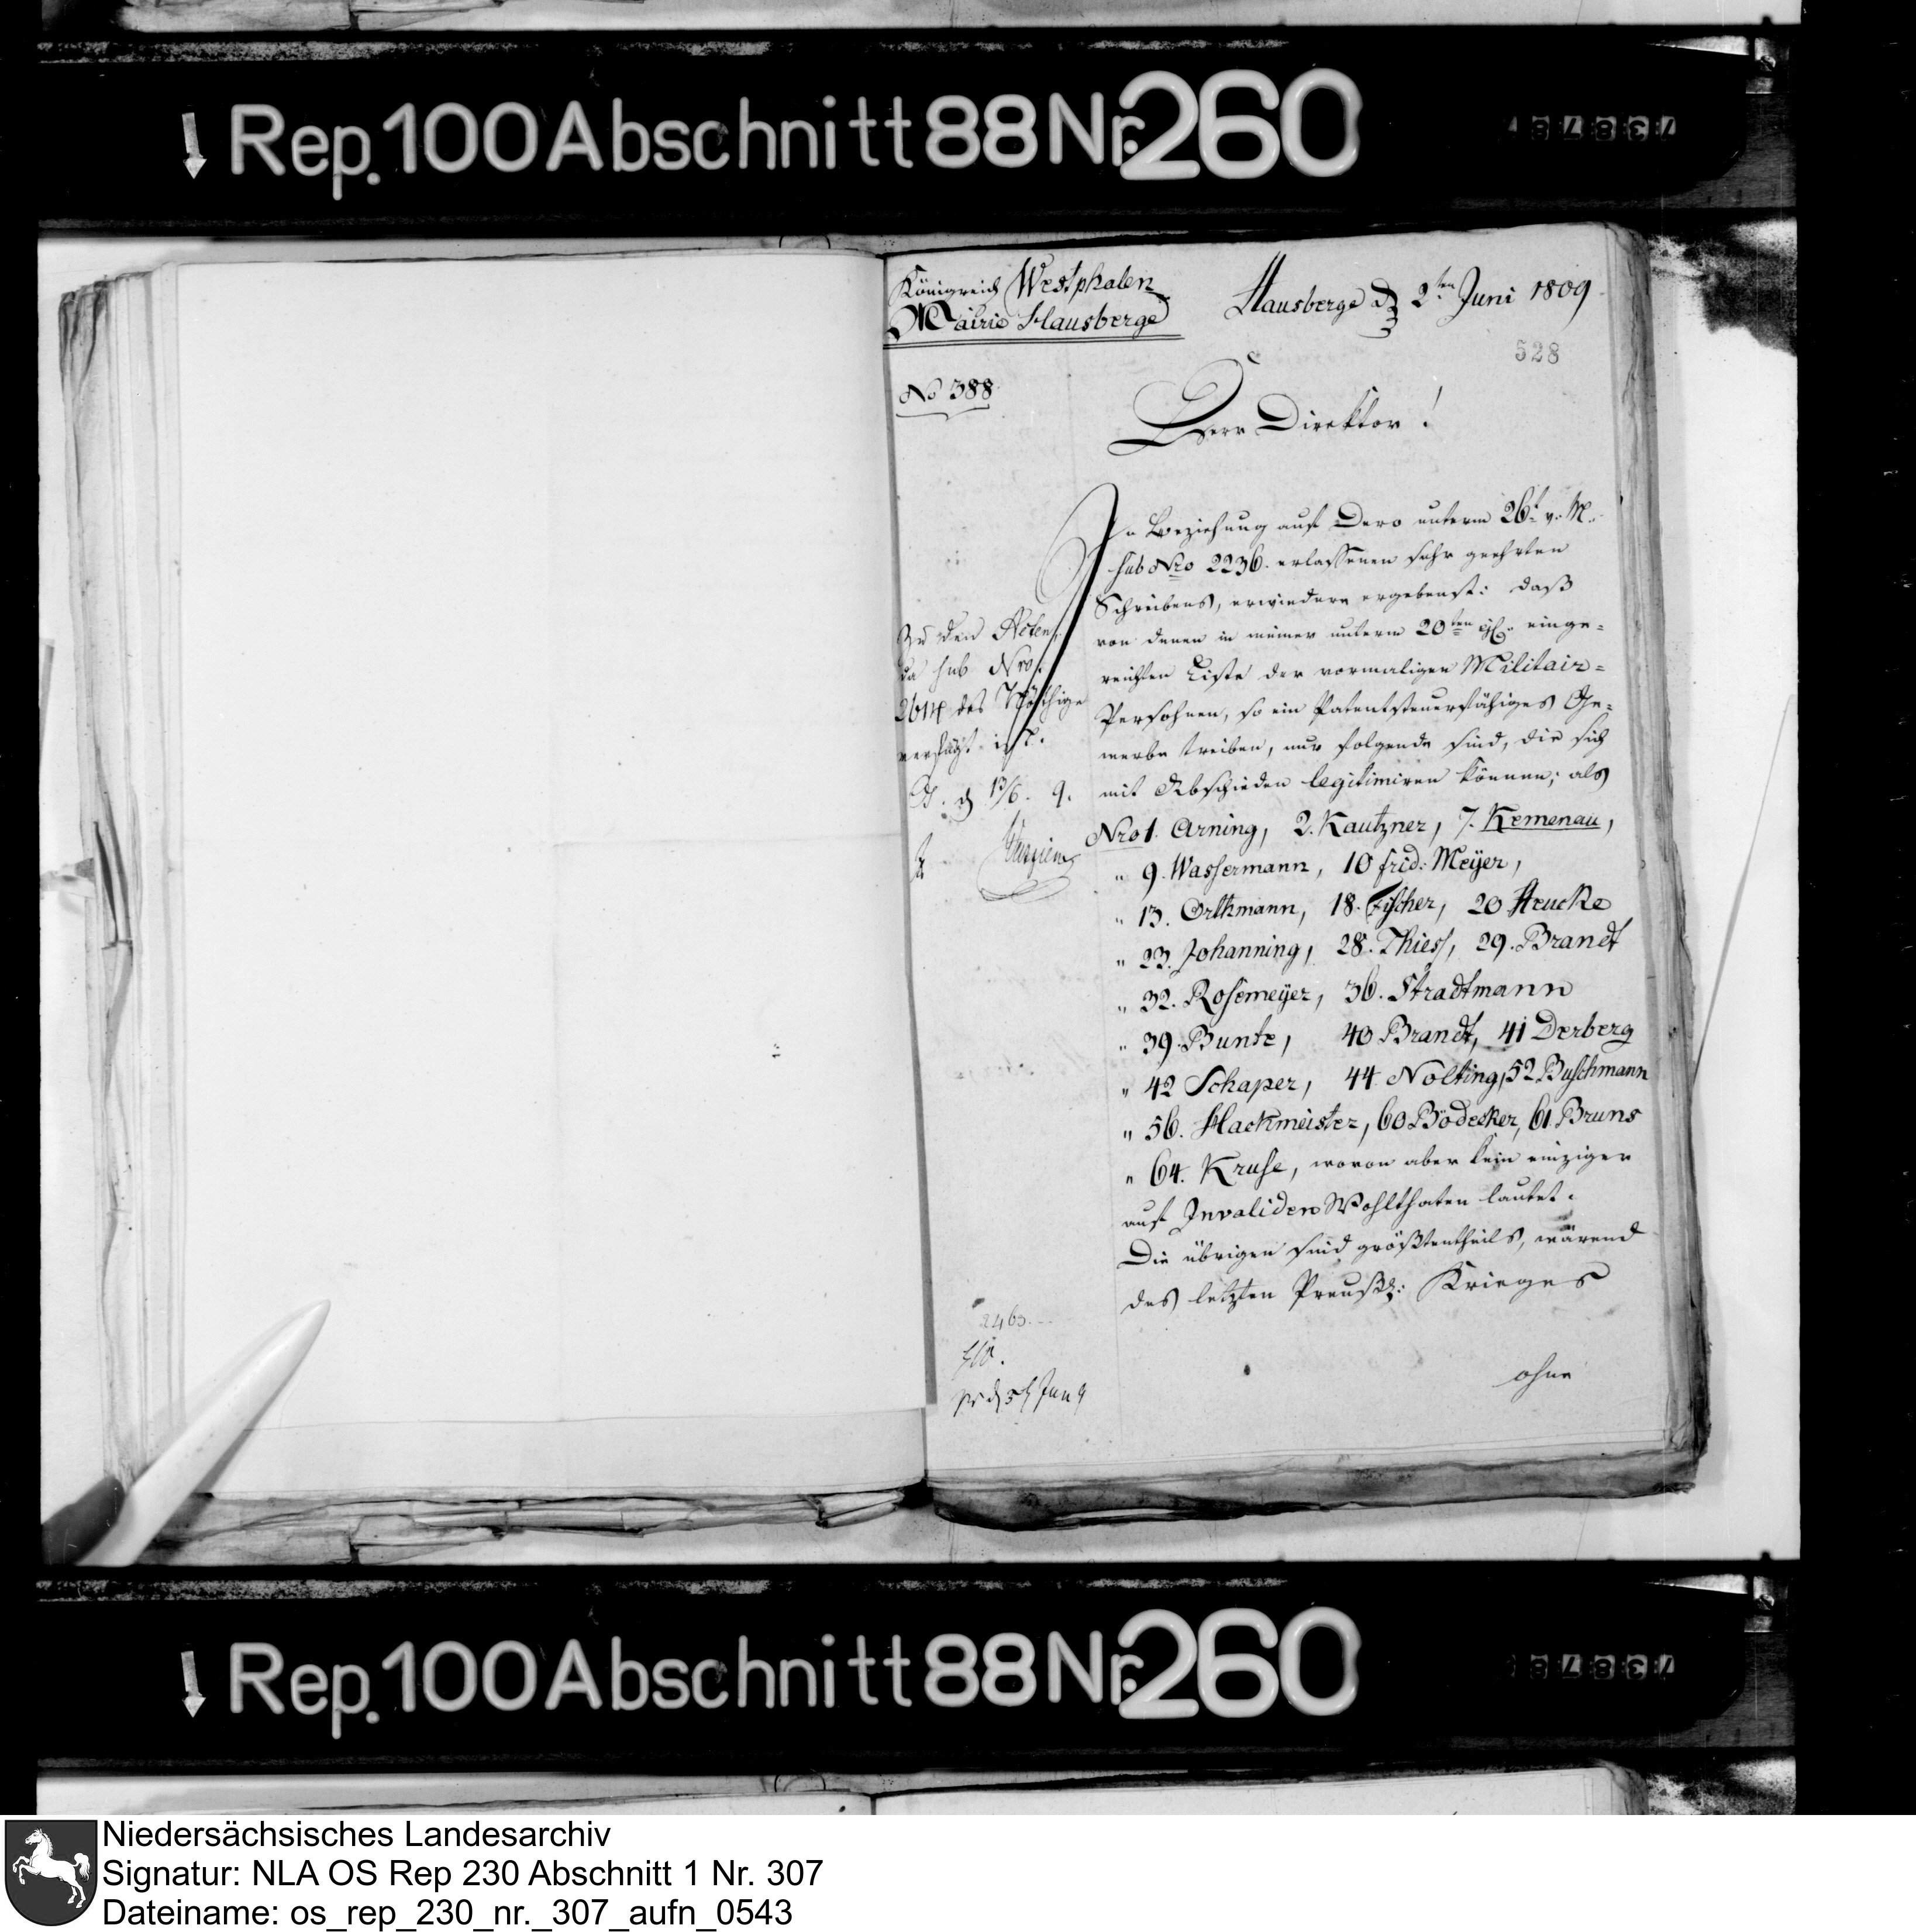 Rep. 100 Abschnitt 88 Nr. 260
Königreich Westphalen
Mairie Hausberge
Hausberge d 2ten Juni 1809
528
No 388
Herr Direktor!
In Beziehung auf Dero unterm 26t v. M.
sub Nro 2236. erlassenen sehr geehrten
Schreibens, erwiedere ergebenst: daß
von denen in meiner unterm 20ten ej. einge=
reichten Liste der vormaligen Militair=
Persohnen, so ein Patentsteuerfähiges Ge=
werbe treiben, nur folgende sind, die sich
mit Abschieden legitimiren können; als
Nro 1. Arning, 2. Kautzner, 7. Kemenau,
" 9. Wassermann, 10 frid: Meÿer,
" 13. Ortkmann, 18. Fischer, 20 Heucke
" 23. Johanning, 28. Thiess, 29. Brandt
" 32. Rosemeÿer, 36. Stradtmann
" 39. Bunte, 40 Brandt, 41 Derberg
" 42 Schaper, 44 Nolting, 52 Buschmann
" 56. Hackmeister, 60 Bödecker, 61. Bruns
" 64. Kruse, wovon aber kein einziger
auf Invaliden Wohlthaten lautet.
Die übrigen sind größtentheils, wärend
des letzten Preuß: Krieges
ohne
Zu den Acten,
da sub Nro.
2614 das Nöthige
verfügt ist.
d 13/6. 9.
2463.
pr d 5t Jun 9
Rep. 100 Abschnitt 88 Nr. 260
Niedersächsisches Landesarchiv
Signatur: NLA OS Rep 230 Abschnitt 1 Nr. 307
Dateiname: os_rep_230_nr._307_aufn_0543